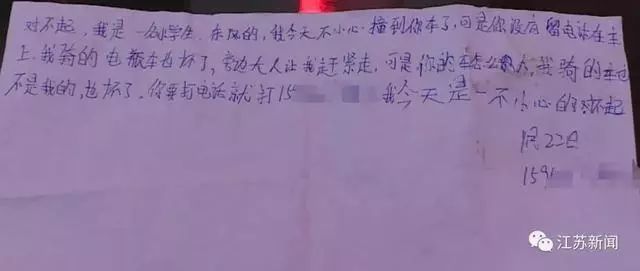 对不起，我是一名小学生，东风的，我今天不小心撞到你车了，可是你没有留电话在车
上，我骑的电瓶车也坏了，旁边大人让我赶紧走，可是你的车，我骑的车也
不是我的，也坏了，你要打电话就打15 我今天是一不小心的对不起
22日
159
江苏新闻